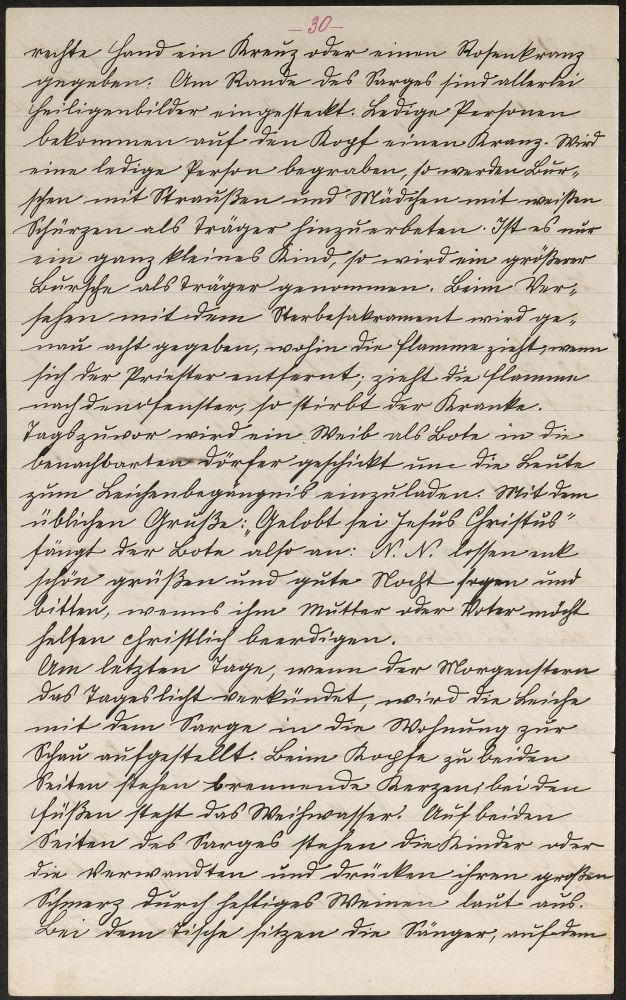 – 30 –
rechte Hand ein Kreuz oder einen Rosenkranz
gegeben. Am Rande des Sarges sind allerlei
Heiligenbilder eingesteckt. Ledige Personen
bekommen auf den Kopf einen Kranz. Wird
eine ledige Person begraben, so werden Bur-
schen mit Straußen und Mädchen mit weißen
Schürzen als Träger hinzuerbeten. Ist es nur
ein ganz kleines Kind, so wird ein größerer
Bursche als Träger genommen. Beim Ver-
sehen mit dem Sterbesakrament wird ge-
nau acht gegeben, wohin die Flamme zieht, wenn
sich der Priester entfernt; zieht die Flamme
nach den Fenster, so stirbt der Kranke.
Tagszuvor wird ein Weib als Bote in die
benachbarten Dörfer geschickt um die Leute
zum Leichenbegängnis einzuladen. Mit dem
üblichen Gruße: „Gelobt sei Jesus Christus"
fängt der Bote also an: N. N. lossen enk
schön grüßen und gute Nocht sogen und
bitten, wenns ihm Mutter oder Voter möcht
helfen christlich beerdigen.
Am letzten Tage, wenn der Morgenstern
das Tageslicht verkündet, wird die Leiche
mit dem Sarge in die Wohnung zur
Schau aufgestellt. Beim Kopfe zu beiden
Seiten stehen brennende Kerzen; bei den
Füßen steht das Weihwasser. Auf beiden
Seiten des Sarges stehen die Kinder oder
die Verwandten und drücken ihren großen
Schmerz durch heftiges Weinen laut aus.
Bei dem Tische sitzen die Sänger, auf dem